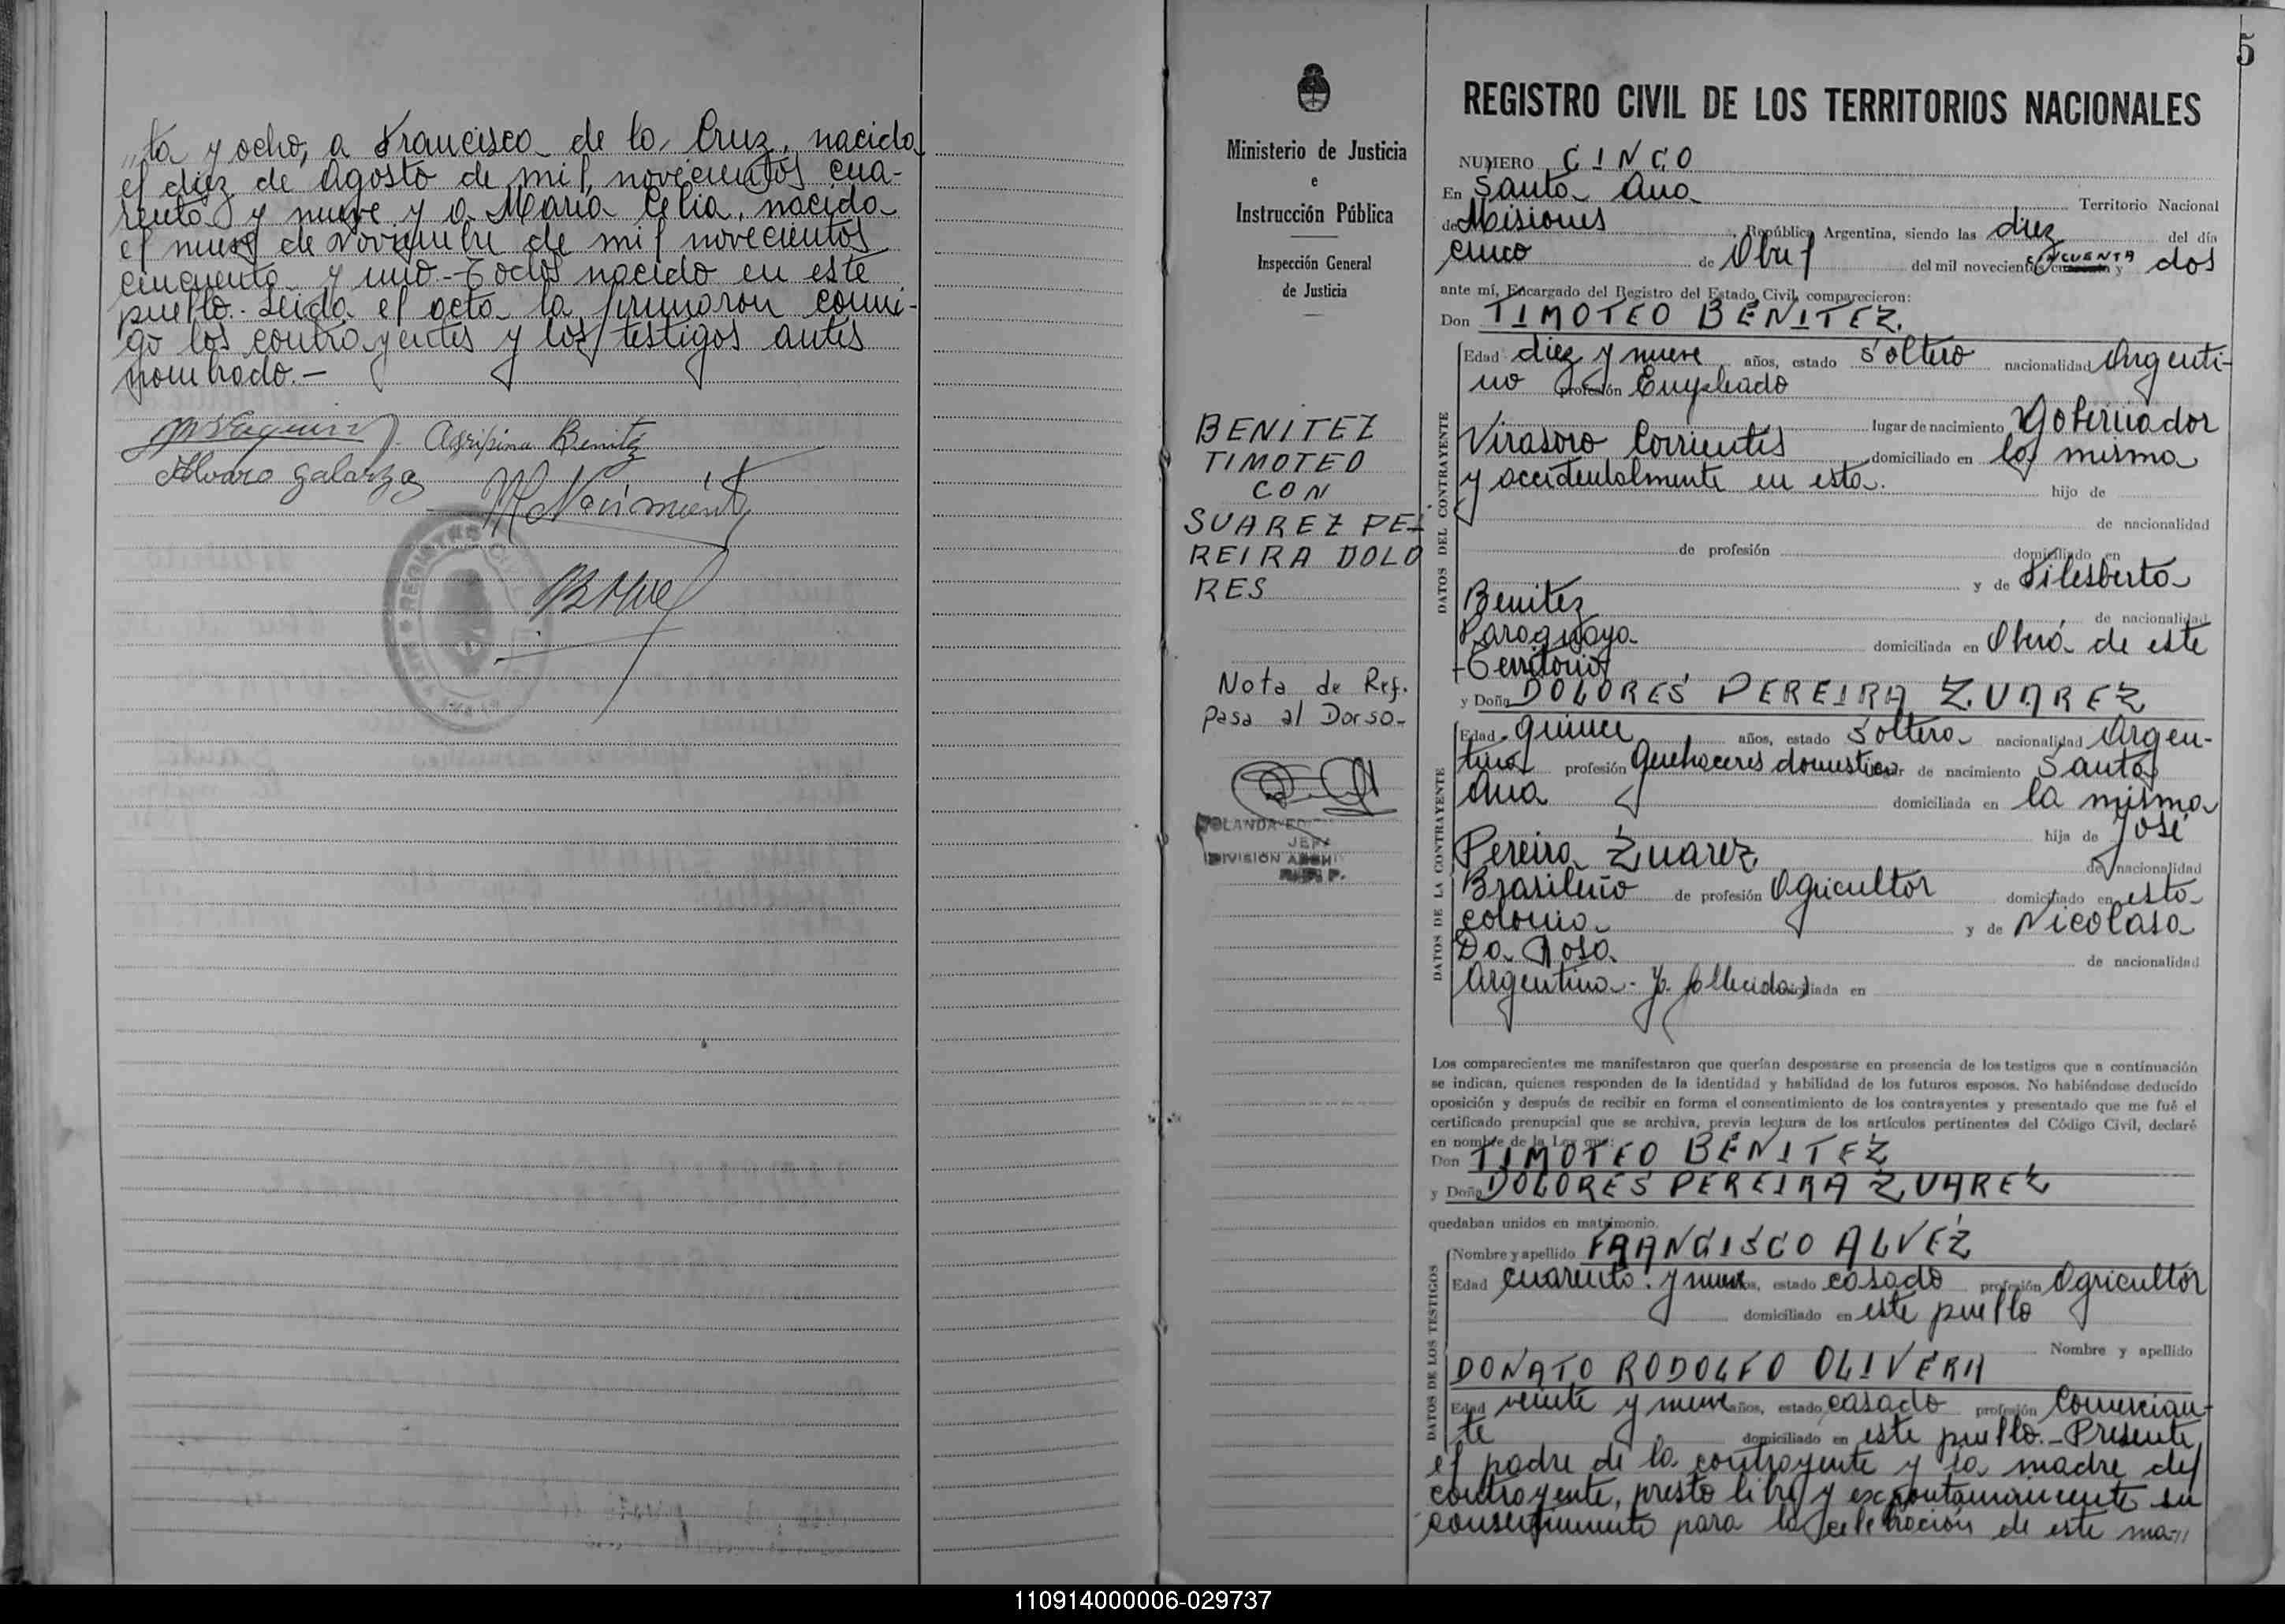 ,,ta y ocho, a Francisca de la Cruz, nacida
el diez de Agosto de mil novecientos cua-
renta y nueve y a Maria Celia, nacida
el nueve de Noviembre de mil novecientos
cincuenta y uno.- Todos nacido en este
pueblo.- Leida el acta la firmaron conmi-
go los contrayentes y los testigos antes
nombrado.-
Agripina Benitez
Alvaro Galarza
M Nacimiento
5
Ministerio de Justicia
e
Instrucción Pública
Inspección General
de Justicia
BENITEZ
TIMOTEO
CON
SUAREZ PE-
REIRA DOLO
RES
Nota de Ref.
pasa al Dorso-
YOLANDA
JEFA
DIVISION
REGISTRO CIVIL DE LOS TERRITORIOS NACIONALES
NUMERO CINCO
En Santa Ana Territorio Nacional
de Misiones, República Argentina, siendo las diez del día
cinco de Abril del mil novecientos cincuenta y dos
ante mí, Encargado del Registro del Estado Civil, comparecieron:
Don TIMOTEO BENITEZ.
DATOS DEL CONTRAYENTE
Edad diez y nueve años, estado soltero nacionalidad Argenti-
no profesión Empleado
lugar de nacimiento Gobernador
Virasoro Corrientes domiciliado en la misma
y accidentalmente en esta. hijo de
de nacionalidad
de profesión domiciliado en
y de Filesberta
Benitez de nacionalidad
Paraguaya domiciliada en Oberá de este
Territorio
y Doña DOLORES PEREIRA ZUAREZ
DATOS DE LA CONTRAYENTE
Edad quince años, estado soltera nacionalidad Argen-
tina profesión Quehaceres domesticos lugar de nacimiento Santa
Ana domiciliada en la misma
hija de José
Pereira Zuarez de nacionalidad
Brasileño de profesión Agricultor domiciliado en esta
colonia y de Nicolasa
Da Rosa de nacionalidad
Argentina- ya fallecida) domiciliada en
Los comparecientes me manifestaron que querían desposarse en presencia de los testigos que a continuación
se indican, quienes responden de la identidad y habilidad de los futuros esposos. No habiéndose deducido
oposición y después de recibir en forma el consentimiento de los contrayentes y presentado que me fué el
certificado prenupcial que se archiva, previa lectura de los artículos pertinentes del Código Civil, declaré
en nombre de la Ley que:
Don TIMOTEO BENITEZ
y Doña DOLORES PEREIRA ZUAREZ
quedaban unidos en matrimonio.
DATOS DE LOS TESTIGOS
Nombre y apellido FRANCISCO ALVEZ
Edad cuarenta y nueve años, estado casado profesión Agricultor
domiciliado en este pueblo
Nombre y apellido
DONATO RODOLFO OLIVERA
Edad veinte y nueve años, estado casado profesión Comercian-
te domiciliado en este pueblo.- Presente
el padre de la contrayente y la madre del
contrayente, presto libre y expontaniamente su
consentimiento para la celebración de este ma-,,
110914000006-029737